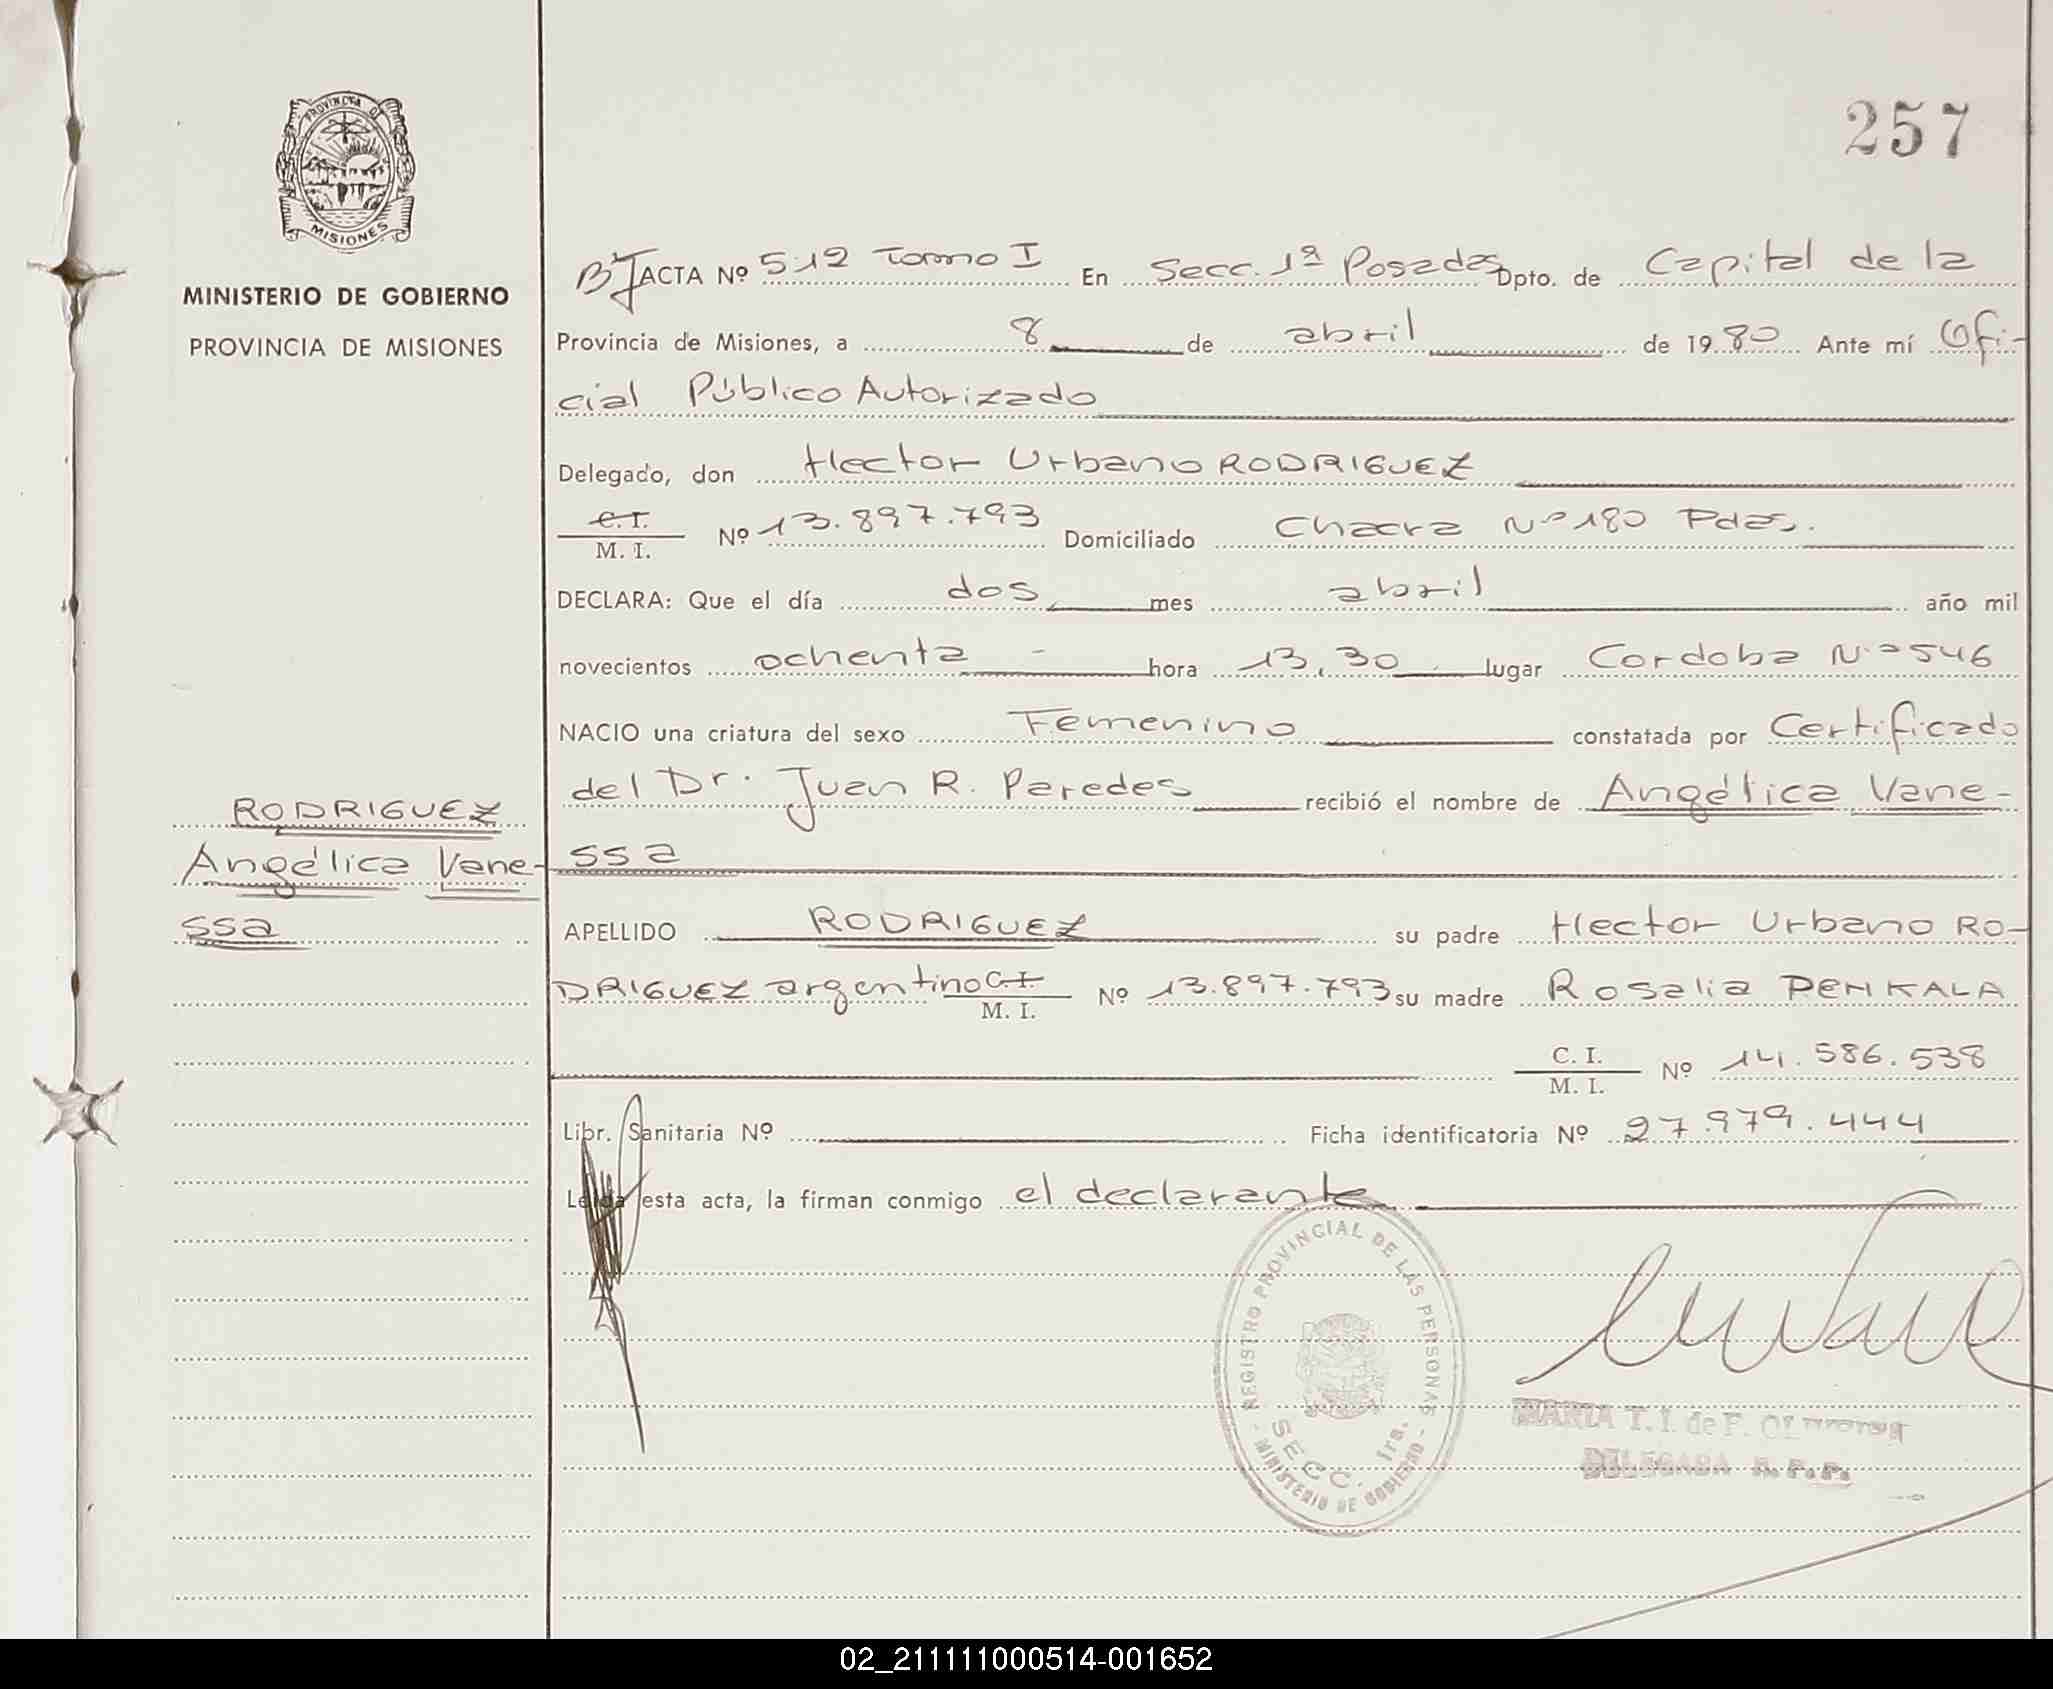 257
PROVINCIA DE
MISIONES
MINISTERIO DE GOBIERNO
PROVINCIA DE MISIONES
ACTA Nº 512 Tomo I En Secc. 1ª Posadas Dpto. de Capital de la
Provincia de Misiones, a 8 de abril de 1980 Ante mí Ofi-
cial Público Autorizado
Delegado, don Hector Urbano RODRIGUEZ
C.I.
M. I. Nº 13.897.793 Domiciliado Chacra Nº 180 Pdas.
DECLARA: Que el día dos mes abril año mil
novecientos ochenta - hora 13,30 lugar Cordoba Nº 546
NACIO una criatura del sexo Femenino constatada por Certificado
del Dr. Juan R. Paredes recibió el nombre de Angélica Vane-
ssa
RODRIGUEZ
Angélica Vane-
ssa
APELLIDO RODRIGUEZ su padre Hector Urbano RO-
DRIGUEZ argentino C.I.
M. I. Nº 13.897.793 su madre Rosalia PENKALA
C. I.
M. I. Nº 14.586.538
Libr. Sanitaria Nº Ficha identificatoria Nº 27.979.444
Leída esta acta, la firman conmigo el declarante
REGISTRO PROVINCIAL DE LAS PERSONAS
SECC. 1ra.
- MINISTERIO DE GOBIERNO -
MARIA T. I. de F.
DELEGADA R. P. P.
02_211111000514-001652